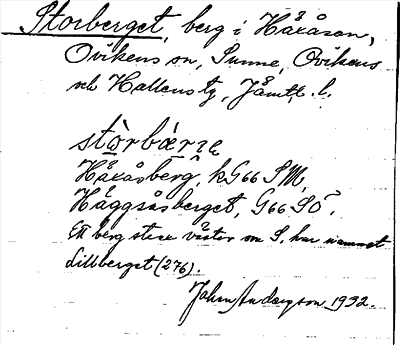 Storberget, berg i Håxåsen,
Ovikens sn, Sunne, Ovikens
och Hallens tg, Jämtl. l.
stò̀rbærʒe
Håxåsberg, hG66 SM,
Häggsåsberget, G66 SÖ.
Ett berg strax väster om S. har namnet
Lillberget (276).
Johan Anderson 1932.